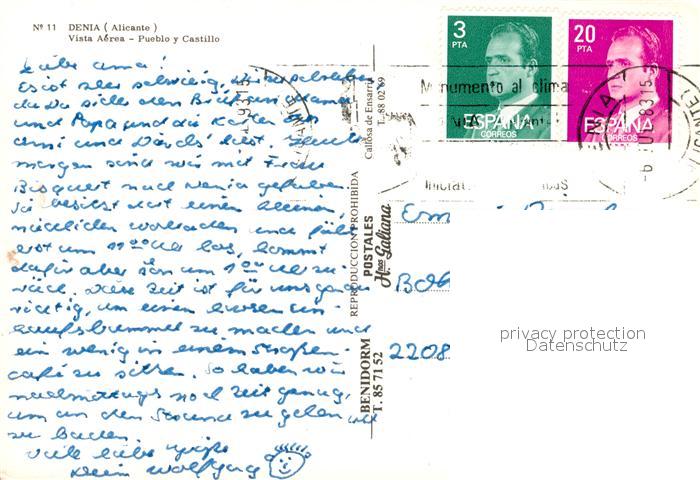 Nº 11 DENIA ( Alicante )
Vista Aérea – Pueblo y Castillo
Liebe Oma!
Es ist sehr schwierig, Dir zu schreiben
da Du sicher den Brief an Mama
und Papa und die Karten an
und liest. Heute
morgen sind wir mit Frau
Bisquert nach Denia gefahren.
Sie besitzt dort einen kleinen,
niedlichen und fährt
erst um 11⁰⁰ Uhr los, kommt
dafür aber schon um 1⁰⁰ Uhr zu-
rück. Diese Zeit ist für uns gerade
richtig, um einen kurzen Ein-
kaufsbummel zu machen und
ein wenig in einem Straßen-
café zu sitzen. So haben wir
nachmittags noch Zeit genug,
um an den Strand zu gehen und
zu baden.
Viele liebe Grüße
Dein Wolfgang
BENIDORM
T. 85 71 52
POSTALES
Hnos Galiana
Callosa de Ensarriá
T. 88 02 69
REPRODUCCION PROHIBIDA
3
PTA
ESPAÑA
CORREOS
20
PTA
ESPAÑA
CORREOS
Monumento al clima
2208
privacy protection
Datenschutz